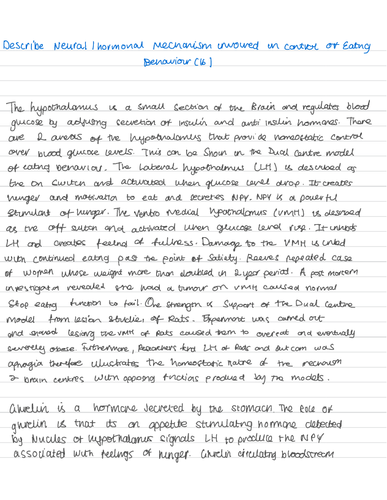 Describe Neural / hormonal Mechanism involved in control of Eating
Behaviour (16)
The hypothalamus is a small section of the Brain and regulates blood
glucose by adjusting secretion of insulin and anti insulin hormones. There
are 2 areas of the hypothalamus that provide homeostatic control
over blood glucose levels. This can be shown in the Dual Centre model
of eating behaviour. The lateral hypothalamus (LH) is described as
the on switch and activated when glucose level drop. It creates
hunger and motivation to eat and secretes NPY. NPY is a powerful
stimulant of hunger. The ventro medial hypothalamus (VMH) is described
as the off switch and activated when glucose level rise. It inhibits
LH and creates feeling of fullness. Damage to the VMH is linked
with continued eating past the point of satiety. Reeves repeated case
of women whose weight more than doubled in 2 year period. A post mortem
investigation revealed she had a tumour on VMH caused normal
stop eating function to fail. One strength is support of the Dual Centre
model from lesion studies of Rats. Experiment was carried out
and showed lesioning the VMH of Rats caused them to overeat and eventually
severely obese. Furthermore, Researchers find LH of Rats and outcome was
aphagia therefore illustrates the homeostatic nature of the mechanism
2 brain centres with opposing functions produced by the models.
Ghrelin is a hormone secreted by the stomach. The role of
ghrelin is that its an appetite stimulating hormone detected
by Nucleus of hypothalamus signals LH to produce the NPY
associated with feelings of hunger. Ghrelin circulating bloodstream